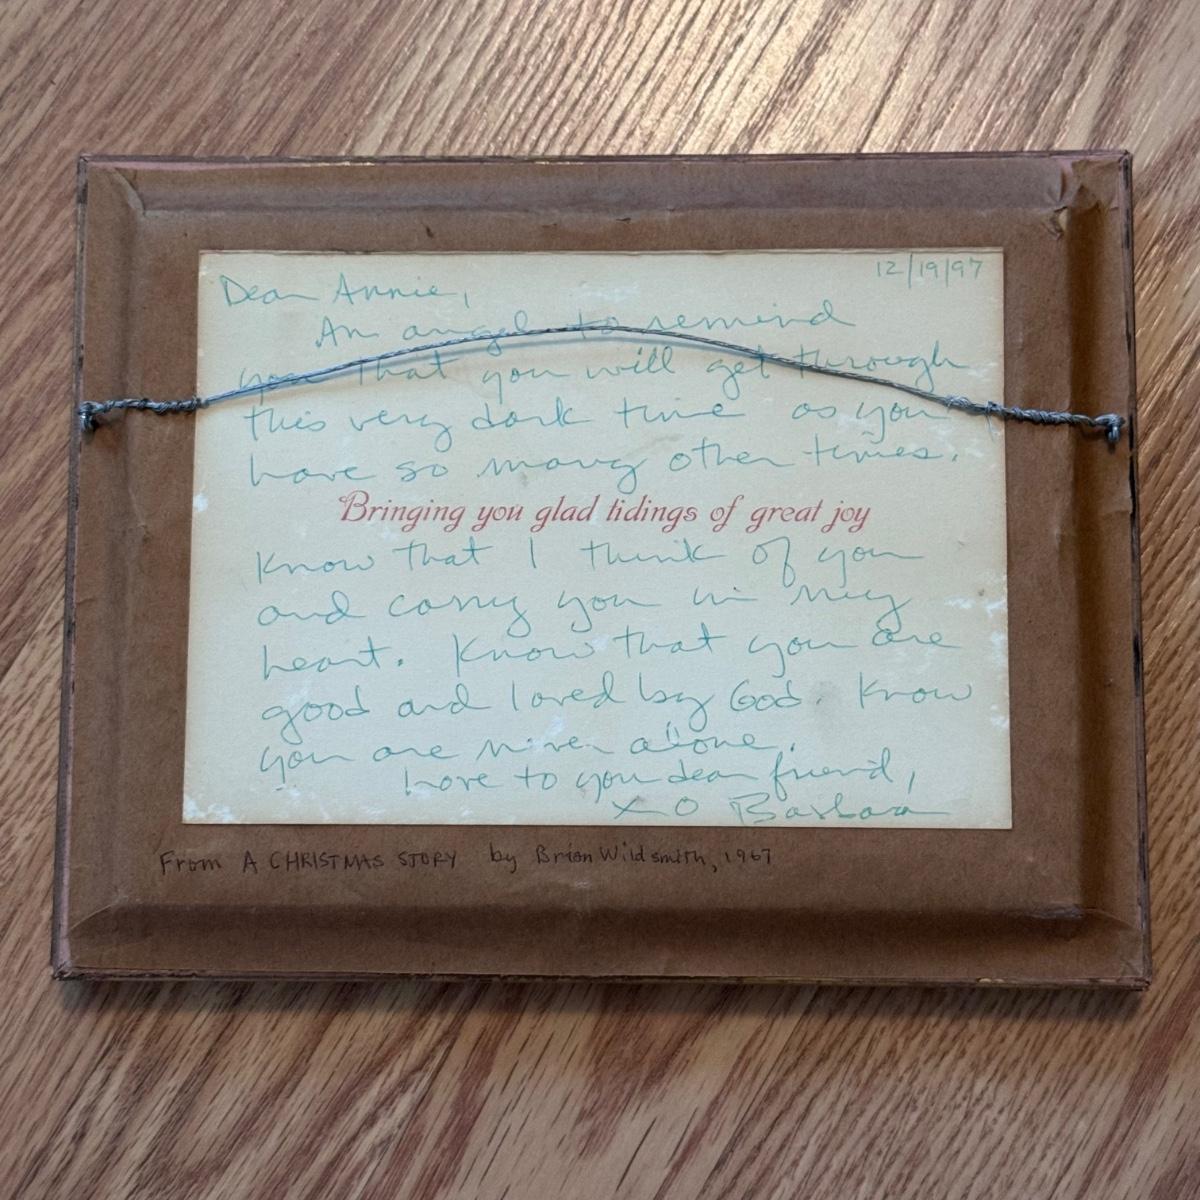 12/19/97
Dear Annie,
An angel to remind
you that you will get through
this very dark time as you
have so many other times.
Bringing you glad tidings of great joy
Know that I think of you
and carry you in my
heart. Know that you are
good and loved by God. Know
you are never alone.
Love to you dear friend,
XO Barbara
From A CHRISTMAS STORY by Brian Wildsmith, 1967